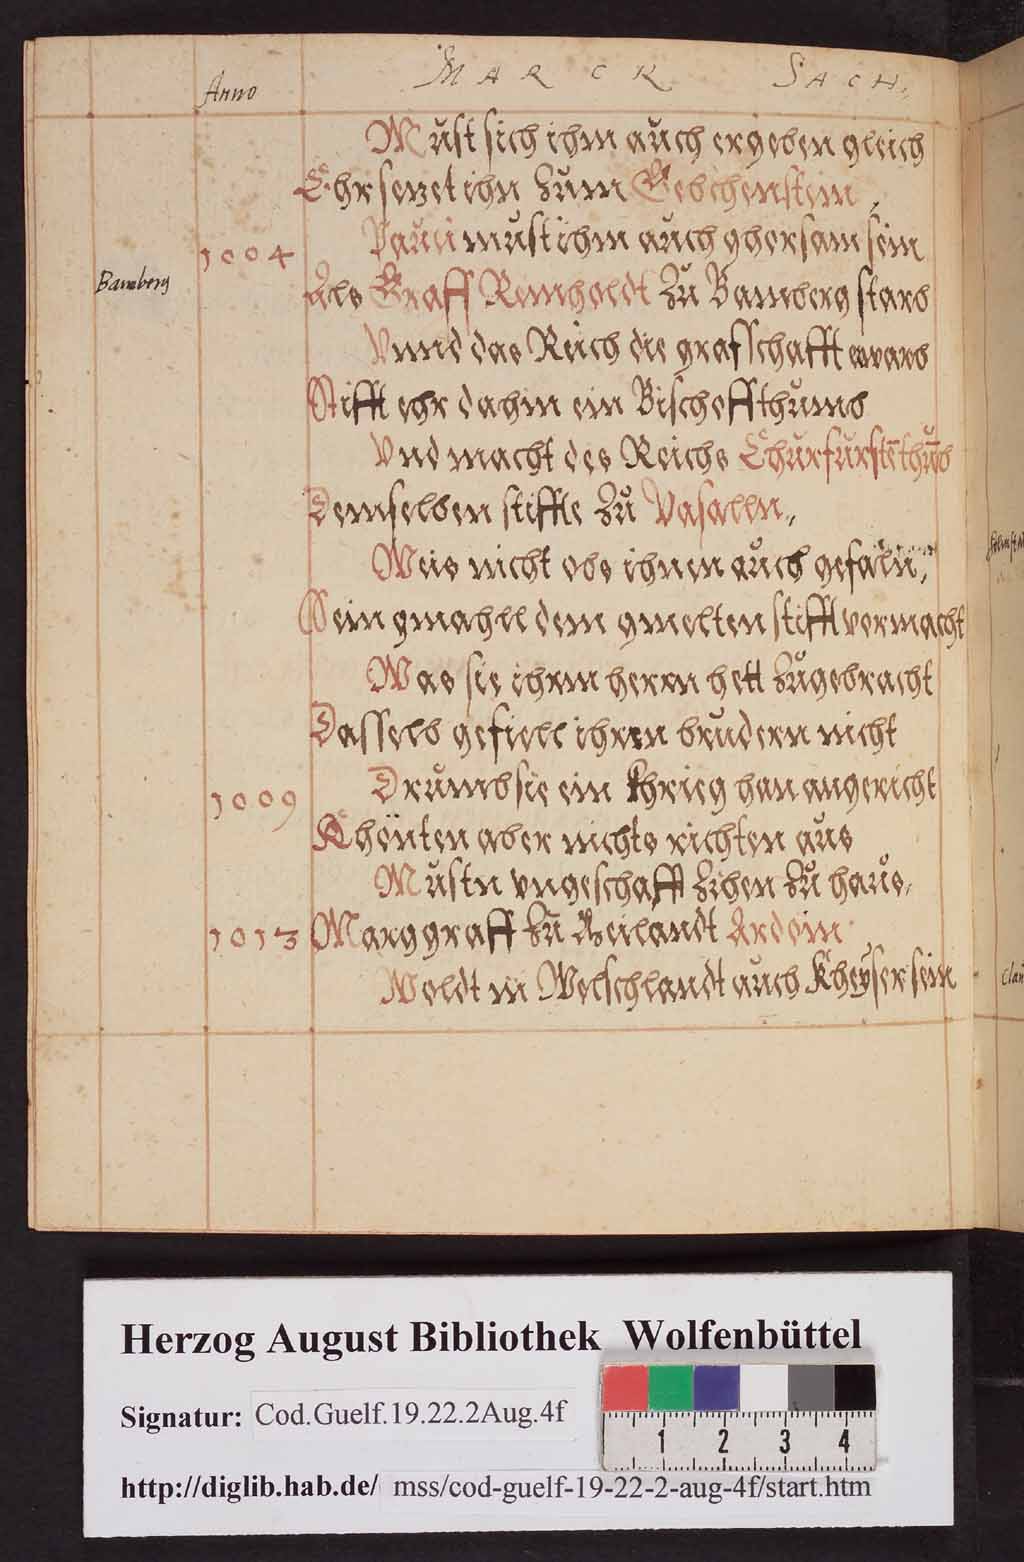 Anno
MARCK SACH.
Must sich ihm auch ergeben gleich
Ehr sevet ihn zum Gebchenstein,
1004
Pauii must ihm auch ghorsam sein
Bamberg
Als Graff Reinholdt zu Bamberg starb
Vnnd das Reich die grafschafft erwarb
Stifft ehr dahin ein Bischoffthumb
Vnd macht des Reichs Churfurstēthūb
Demselben stiffte zu Vasalln,,
Weis nicht obs ihnen auch gefaln,
Sein gmahll dem gmelten stifft vermacht
Was sie ihrm herrn hett zugebracht
Dasselb gefiell ihren brudern nicht
1009
Drumb sie ein khrieg han angericht
Khönten aber nichts richten aus
Mustn vngeschafft zihen zu haus,
1013
Marggraff zu Meilandt Ardoin
Woldt in Welschlandt auch Kheyser sein
Herzog August Bibliothek Wolfenbüttel
Signatur: Cod.Guelf.19.22.2Aug.4f
1 2 3 4
http://diglib.hab.de/ mss/cod-guelf-19-22-2-aug-4f/start.htm